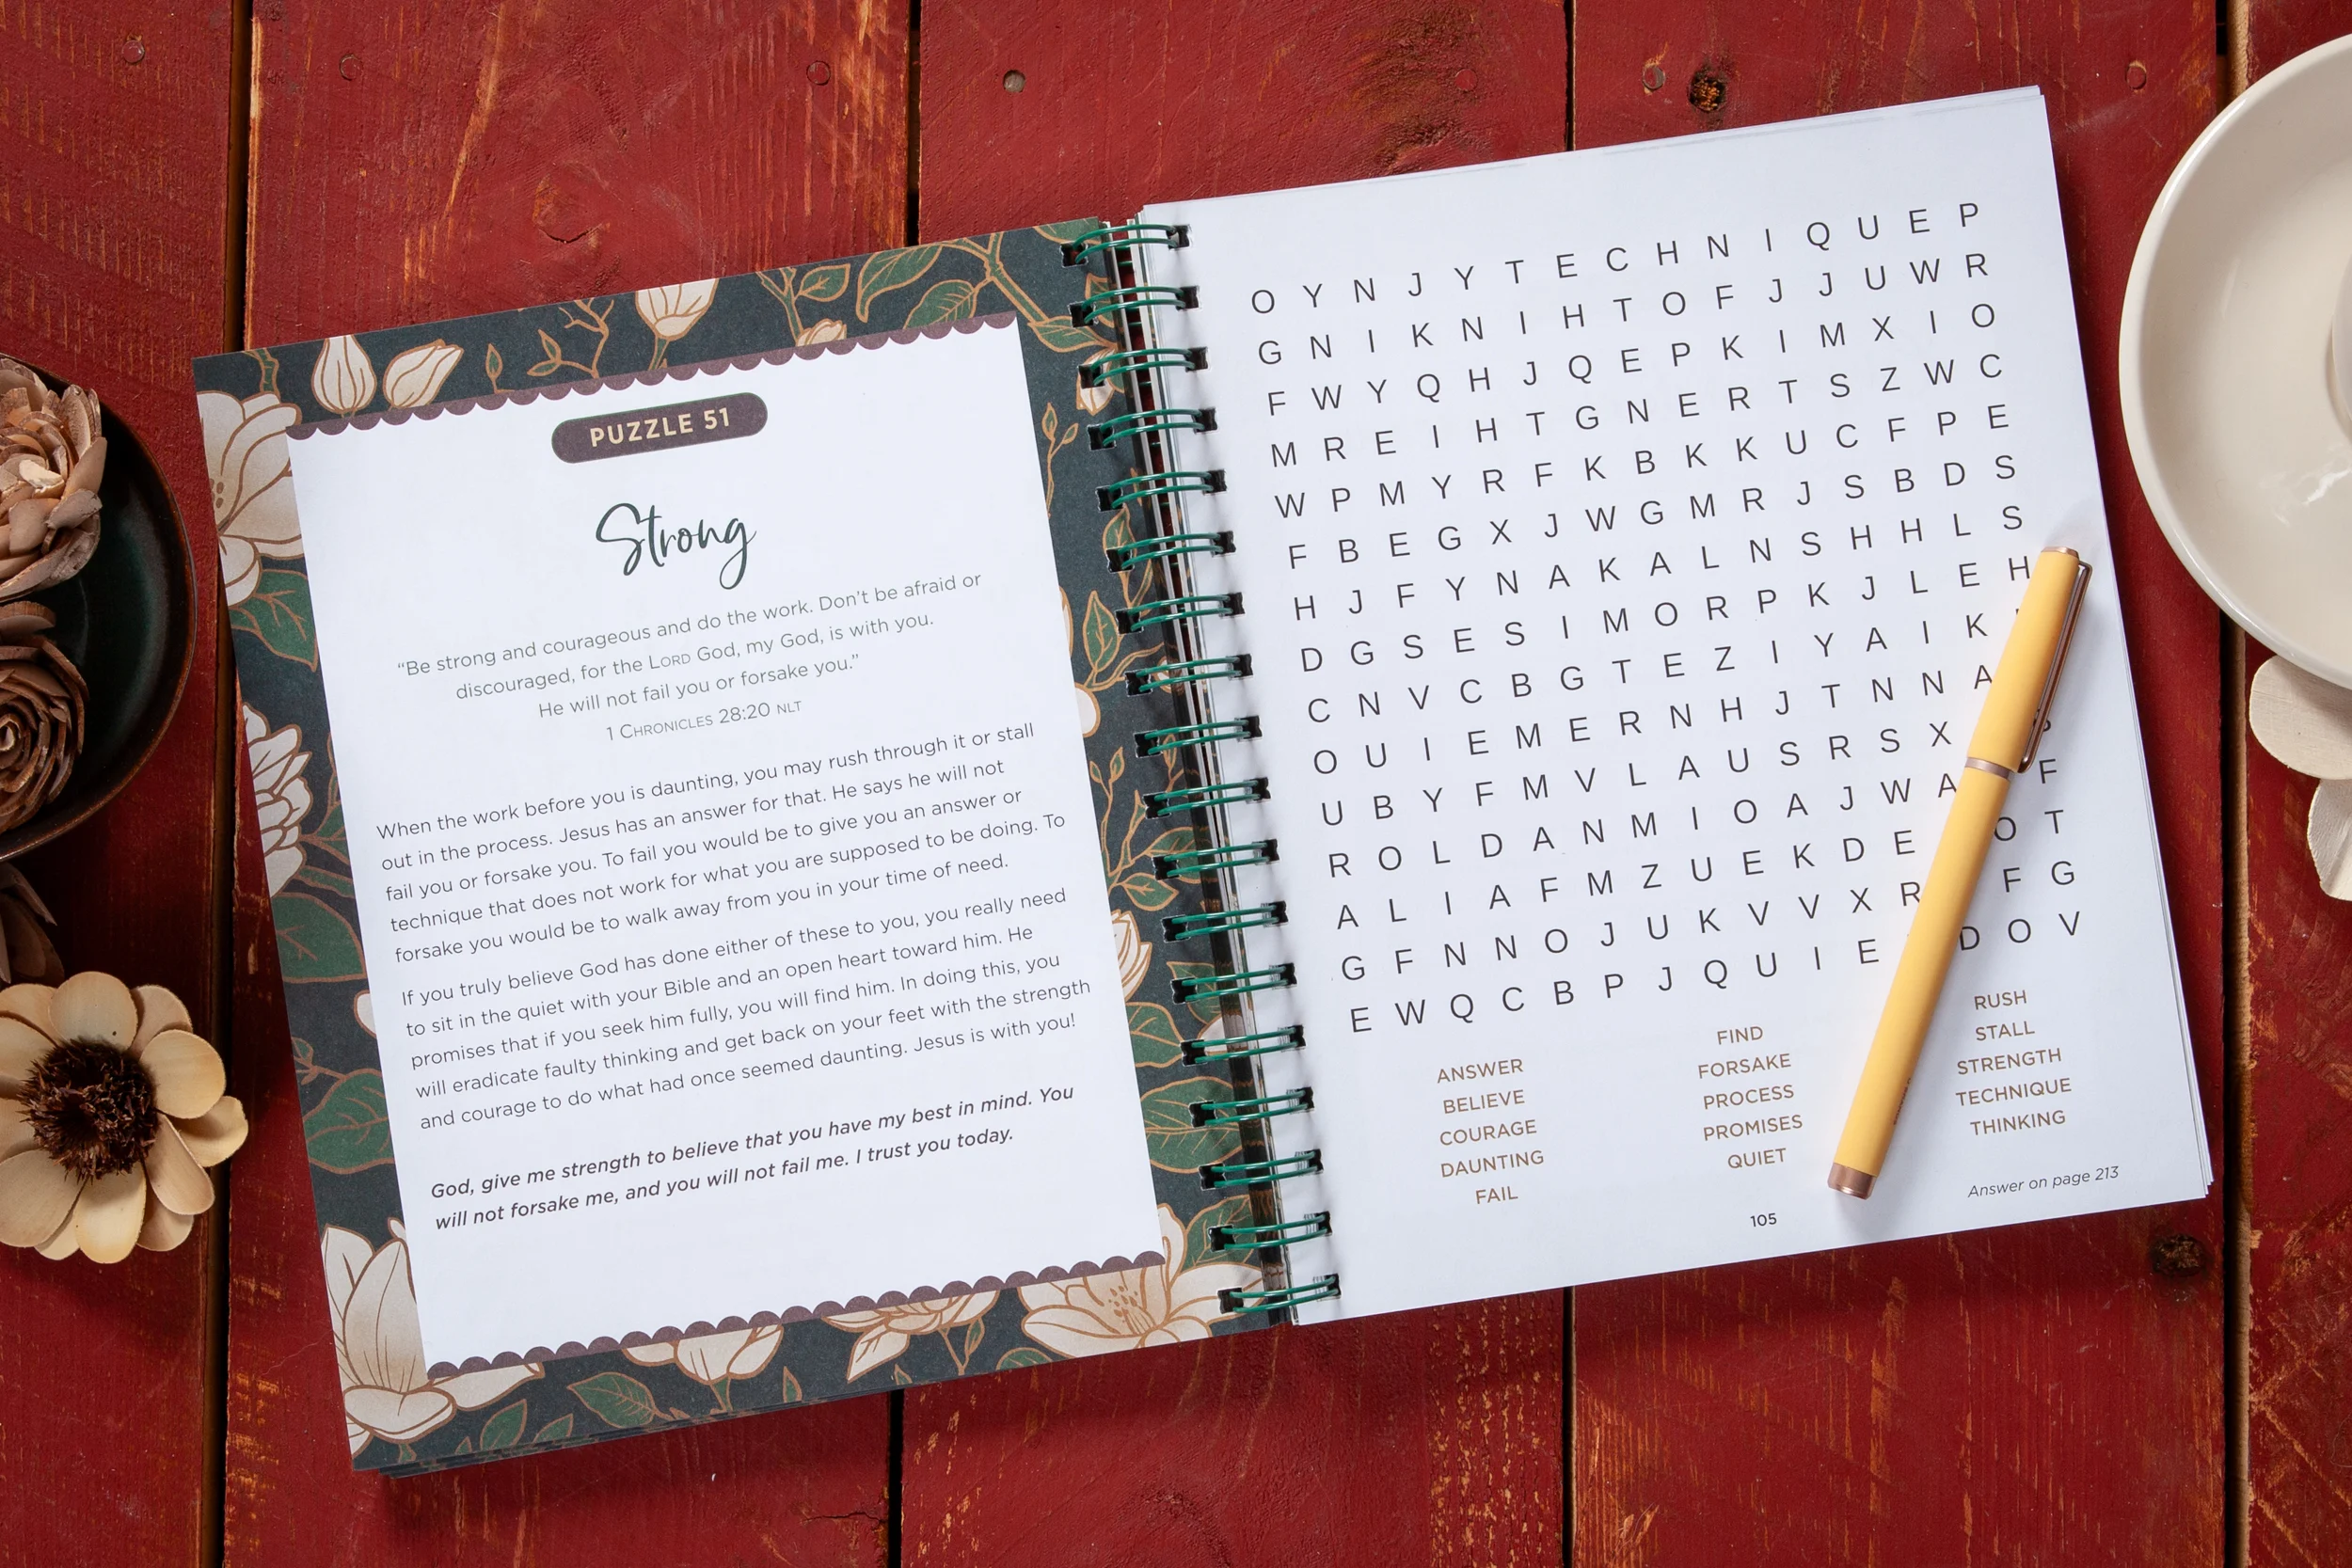 PUZZLE 51
Strong
“Be strong and courageous and do the work. Don’t be afraid or
discouraged, for the LORD God, my God, is with you.
He will not fail you or forsake you.”
1 CHRONICLES 28:20 NLT
When the work before you is daunting, you may rush through it or stall
out in the process. Jesus has an answer for that. He says he will not
fail you or forsake you. To fail you would be to give you an answer or
technique that does not work for what you are supposed to be doing. To
forsake you would be to walk away from you in your time of need.
If you truly believe God has done either of these to you, you really need
to sit in the quiet with your Bible and an open heart toward him. He
promises that if you seek him fully, you will find him. In doing this, you
will eradicate faulty thinking and get back on your feet with the strength
and courage to do what had once seemed daunting. Jesus is with you!
God, give me strength to believe that you have my best in mind. You
will not forsake me, and you will not fail me. I trust you today.
O Y N J Y T E C H N I Q U E P
G N I K N I H T O F J J U W R
F W Y Q H J Q E P K I M X I O
M R E I H T G N E R T S Z W C
W P M Y R F K B K K U C F P E
F B E G X J W G M R J S B D S
H J F Y N A K A L N S H H L S
D G S E S I M O R P K J L E H
C N V C B G T E Z I Y A I K
O U I E M E R N H J T N N A
U B Y F M V L A U S R S X
R O L D A N M I O A J W A F
A L I A F M Z U E K D E O T
G F N N O J U K V V X R F G
E W Q C B P J Q U I E D O V
ANSWER
BELIEVE
COURAGE
DAUNTING
FAIL
FIND
FORSAKE
PROCESS
PROMISES
QUIET
RUSH
STALL
STRENGTH
TECHNIQUE
THINKING
Answer on page 213
105